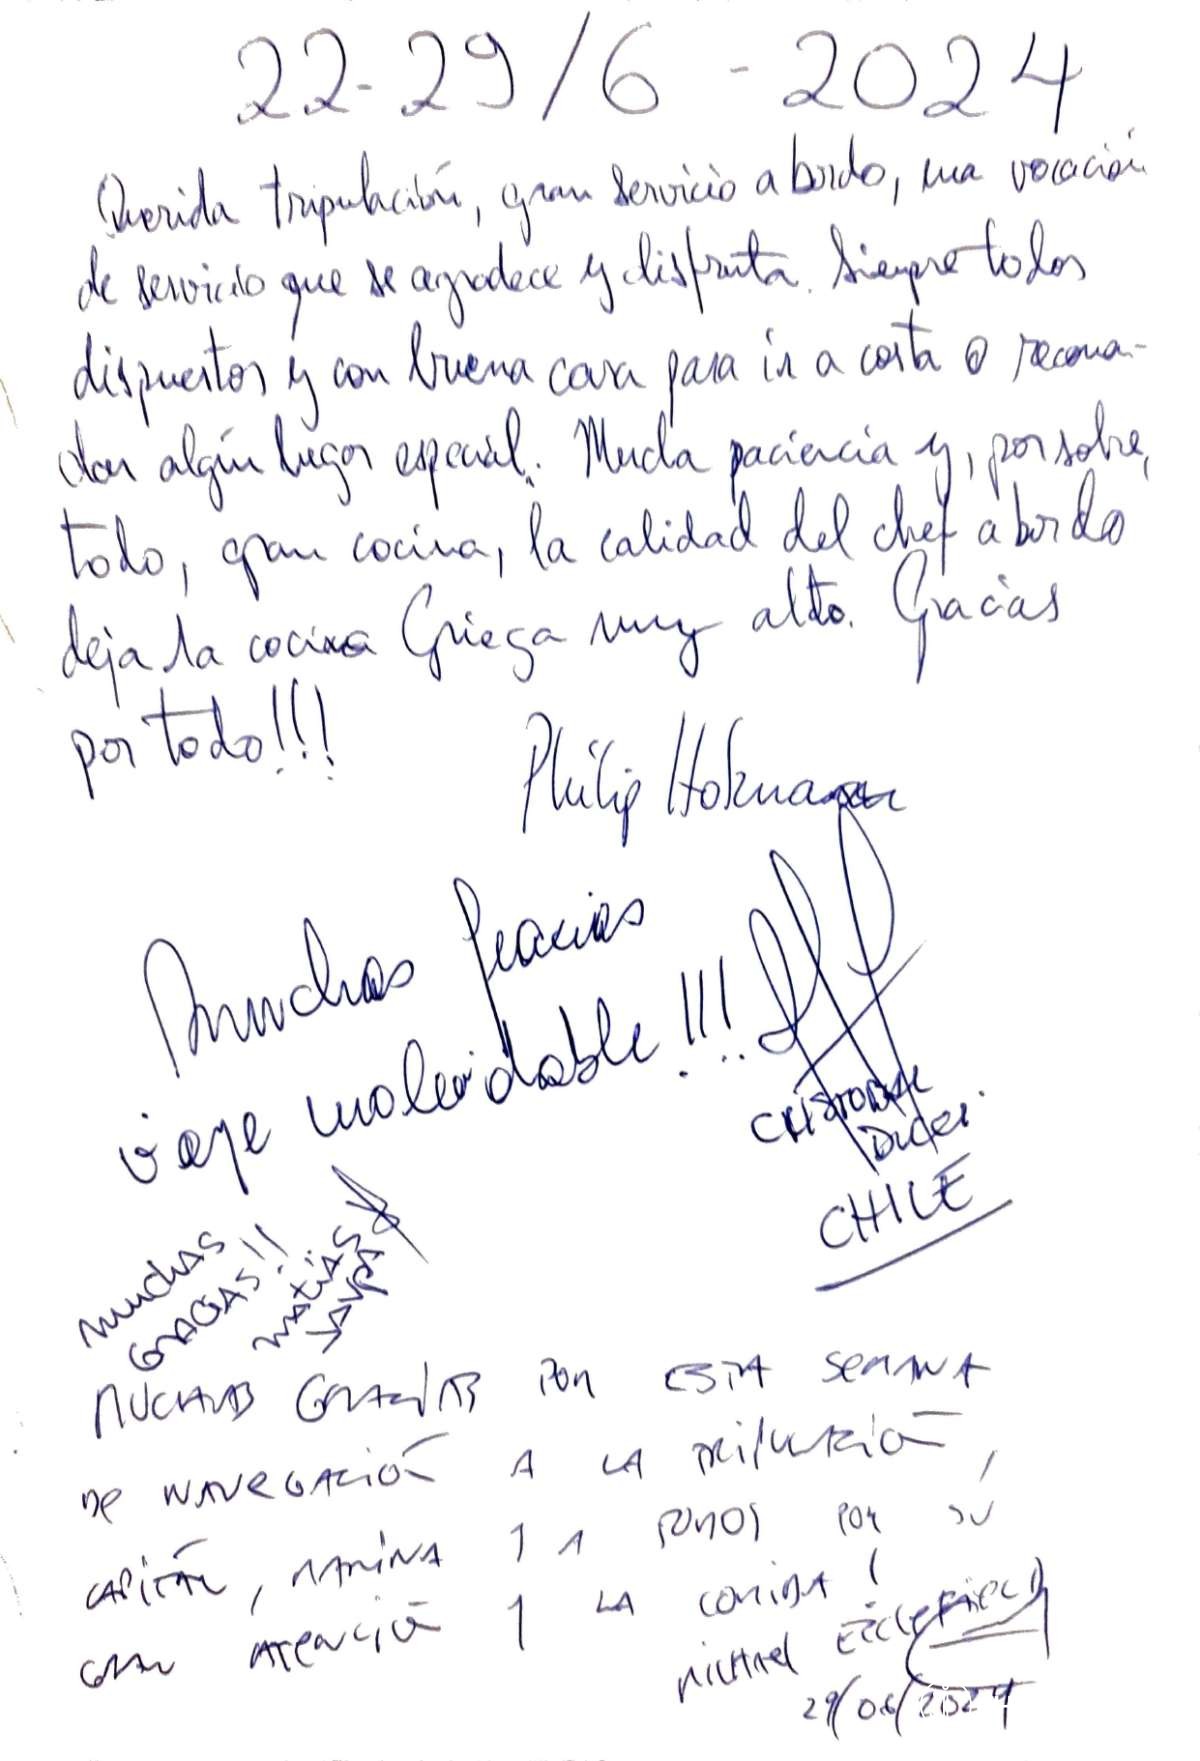 22-29/6 - 2024
Querida tripulación, gran servicio a bordo, una vocación
de servicio que se agradece y disfruta. Siempre todos
dispuestos y con buena cara para ir a costa o recomen-
dar algún lugar especial. Mucha paciencia y, por sobre
todo, gran cocina, la calidad del chef a bordo
deja la cocina Griega muy alto. Gracias
por todo!!!
Philip
Muchas gracias
viaje inolvidable!!!
CRISTOBAL
CHILE
MUCHAS
GRACIAS!!
MATIAS
MUCHAS GRACIAS POR ESTA SEMANA
DE NAVEGACIÓN A LA TRIPULACIÓN,
CAPITÁN, MARINA Y A TODOS POR SU
GRAN ATENCIÓN Y LA COMIDA!
MICHAEL
29/06/2024